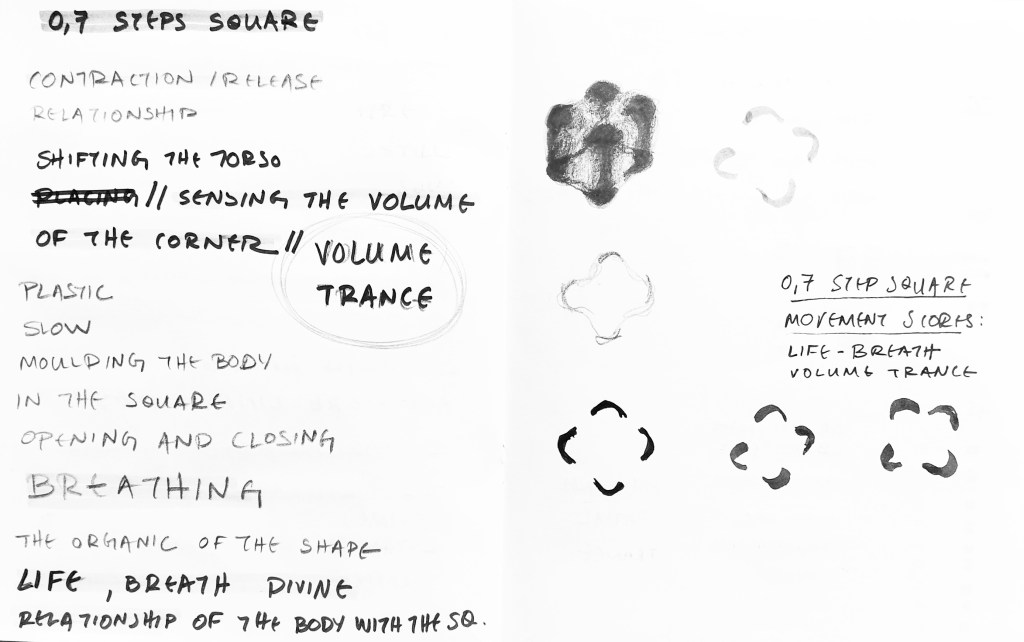 0,7 STEPS SQUARE
CONTRACTION / RELEASE
RELATIONSHIP
SHIFTING THE TORSO
PLACING // SENSING THE VOLUME
OF THE CORNER //
VOLUME
TRANCE
PLASTIC
SLOW
MOULDING THE BODY
IN THE SQUARE
OPENING AND CLOSING
BREATHING
THE ORGANIC OF THE SHAPE
LIFE , BREATH DIVINE
RELATIONSHIP OF THE BODY WITH THE SQ.
0,7 STEP SQUARE
MOVEMENT SCORES:
LIFE - BREATH
VOLUME TRANCE